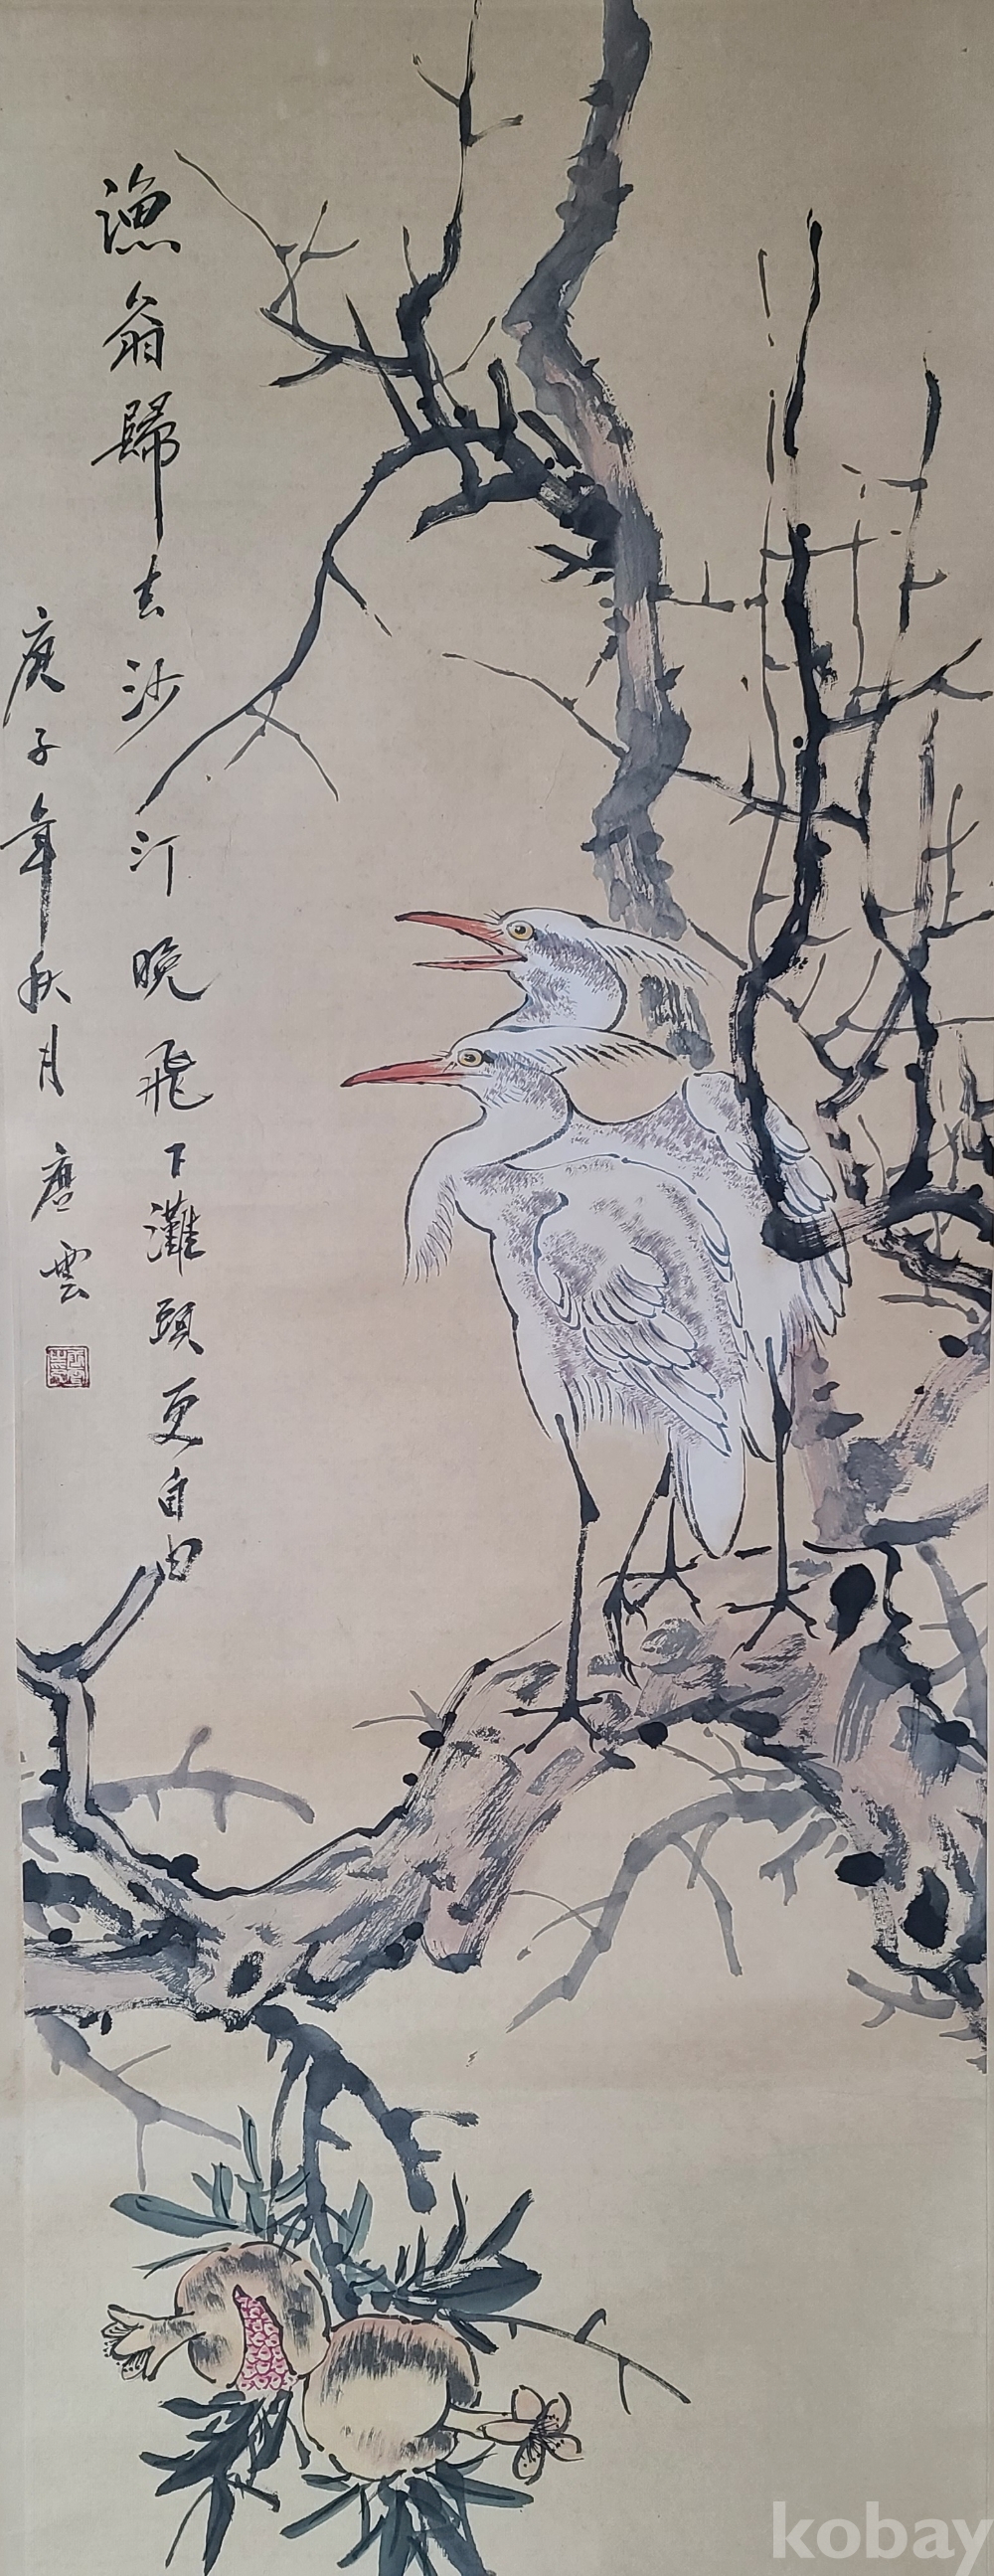 漁翁歸去沙汀晚飛下灘頭更自由
庚子年秋月 唐雲
kobay